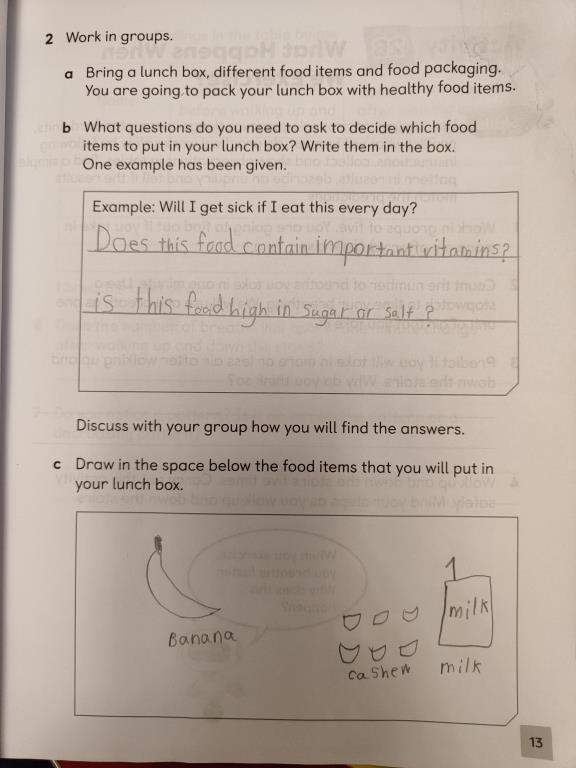 2 Work in groups.
a Bring a lunch box, different food items and food packaging.
You are going to pack your lunch box with healthy food items.
b What questions do you need to ask to decide which food
items to put in your lunch box? Write them in the box.
One example has been given.
Example: Will I get sick if I eat this every day?
Does this food contain important vitamins?
is this food high in sugar or salt?
Discuss with your group how you will find the answers.
c Draw in the space below the food items that you will put in
your lunch box.
milk
Banana
cashew
milk
13